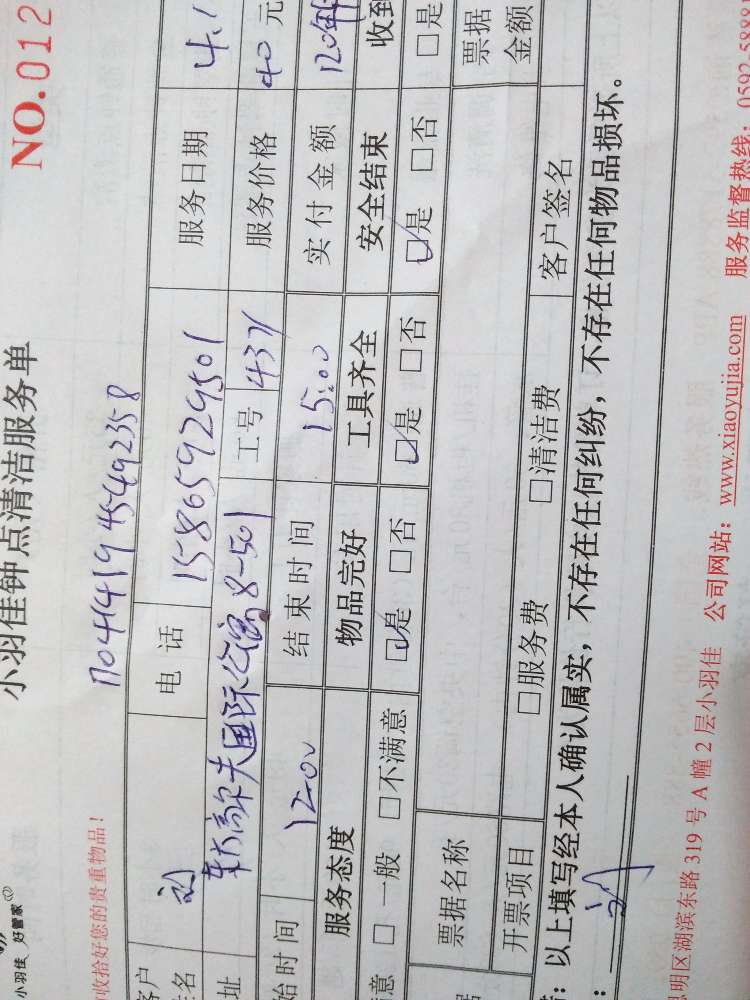 小羽佳 好管家
小羽佳钟点清洁服务单
NO.012
收拾好您的贵重物品!
1704141945492358
客户 电话 15865929501 服务日期 4.1
址 8-501 工号 437 服务价格 40元
始时间 12:00 结束时间 15:00 实付金额 120
服务态度 物品完好 工具齐全 安全结束 收到
意 □一般 □不满意 ☑是 □否 ☑是 □否 ☑是 □否 □是
票据名称 票据
开票项目 □服务费 □清洁费 客户签名 金额
:以上填写经本人确认属实,不存在任何纠纷,不存在任何物品损坏。
明区湖滨东路 319 号 A 幢 2 层小羽佳 公司网站:www.xiaoyujia.com 服务监督热线 0592-5888